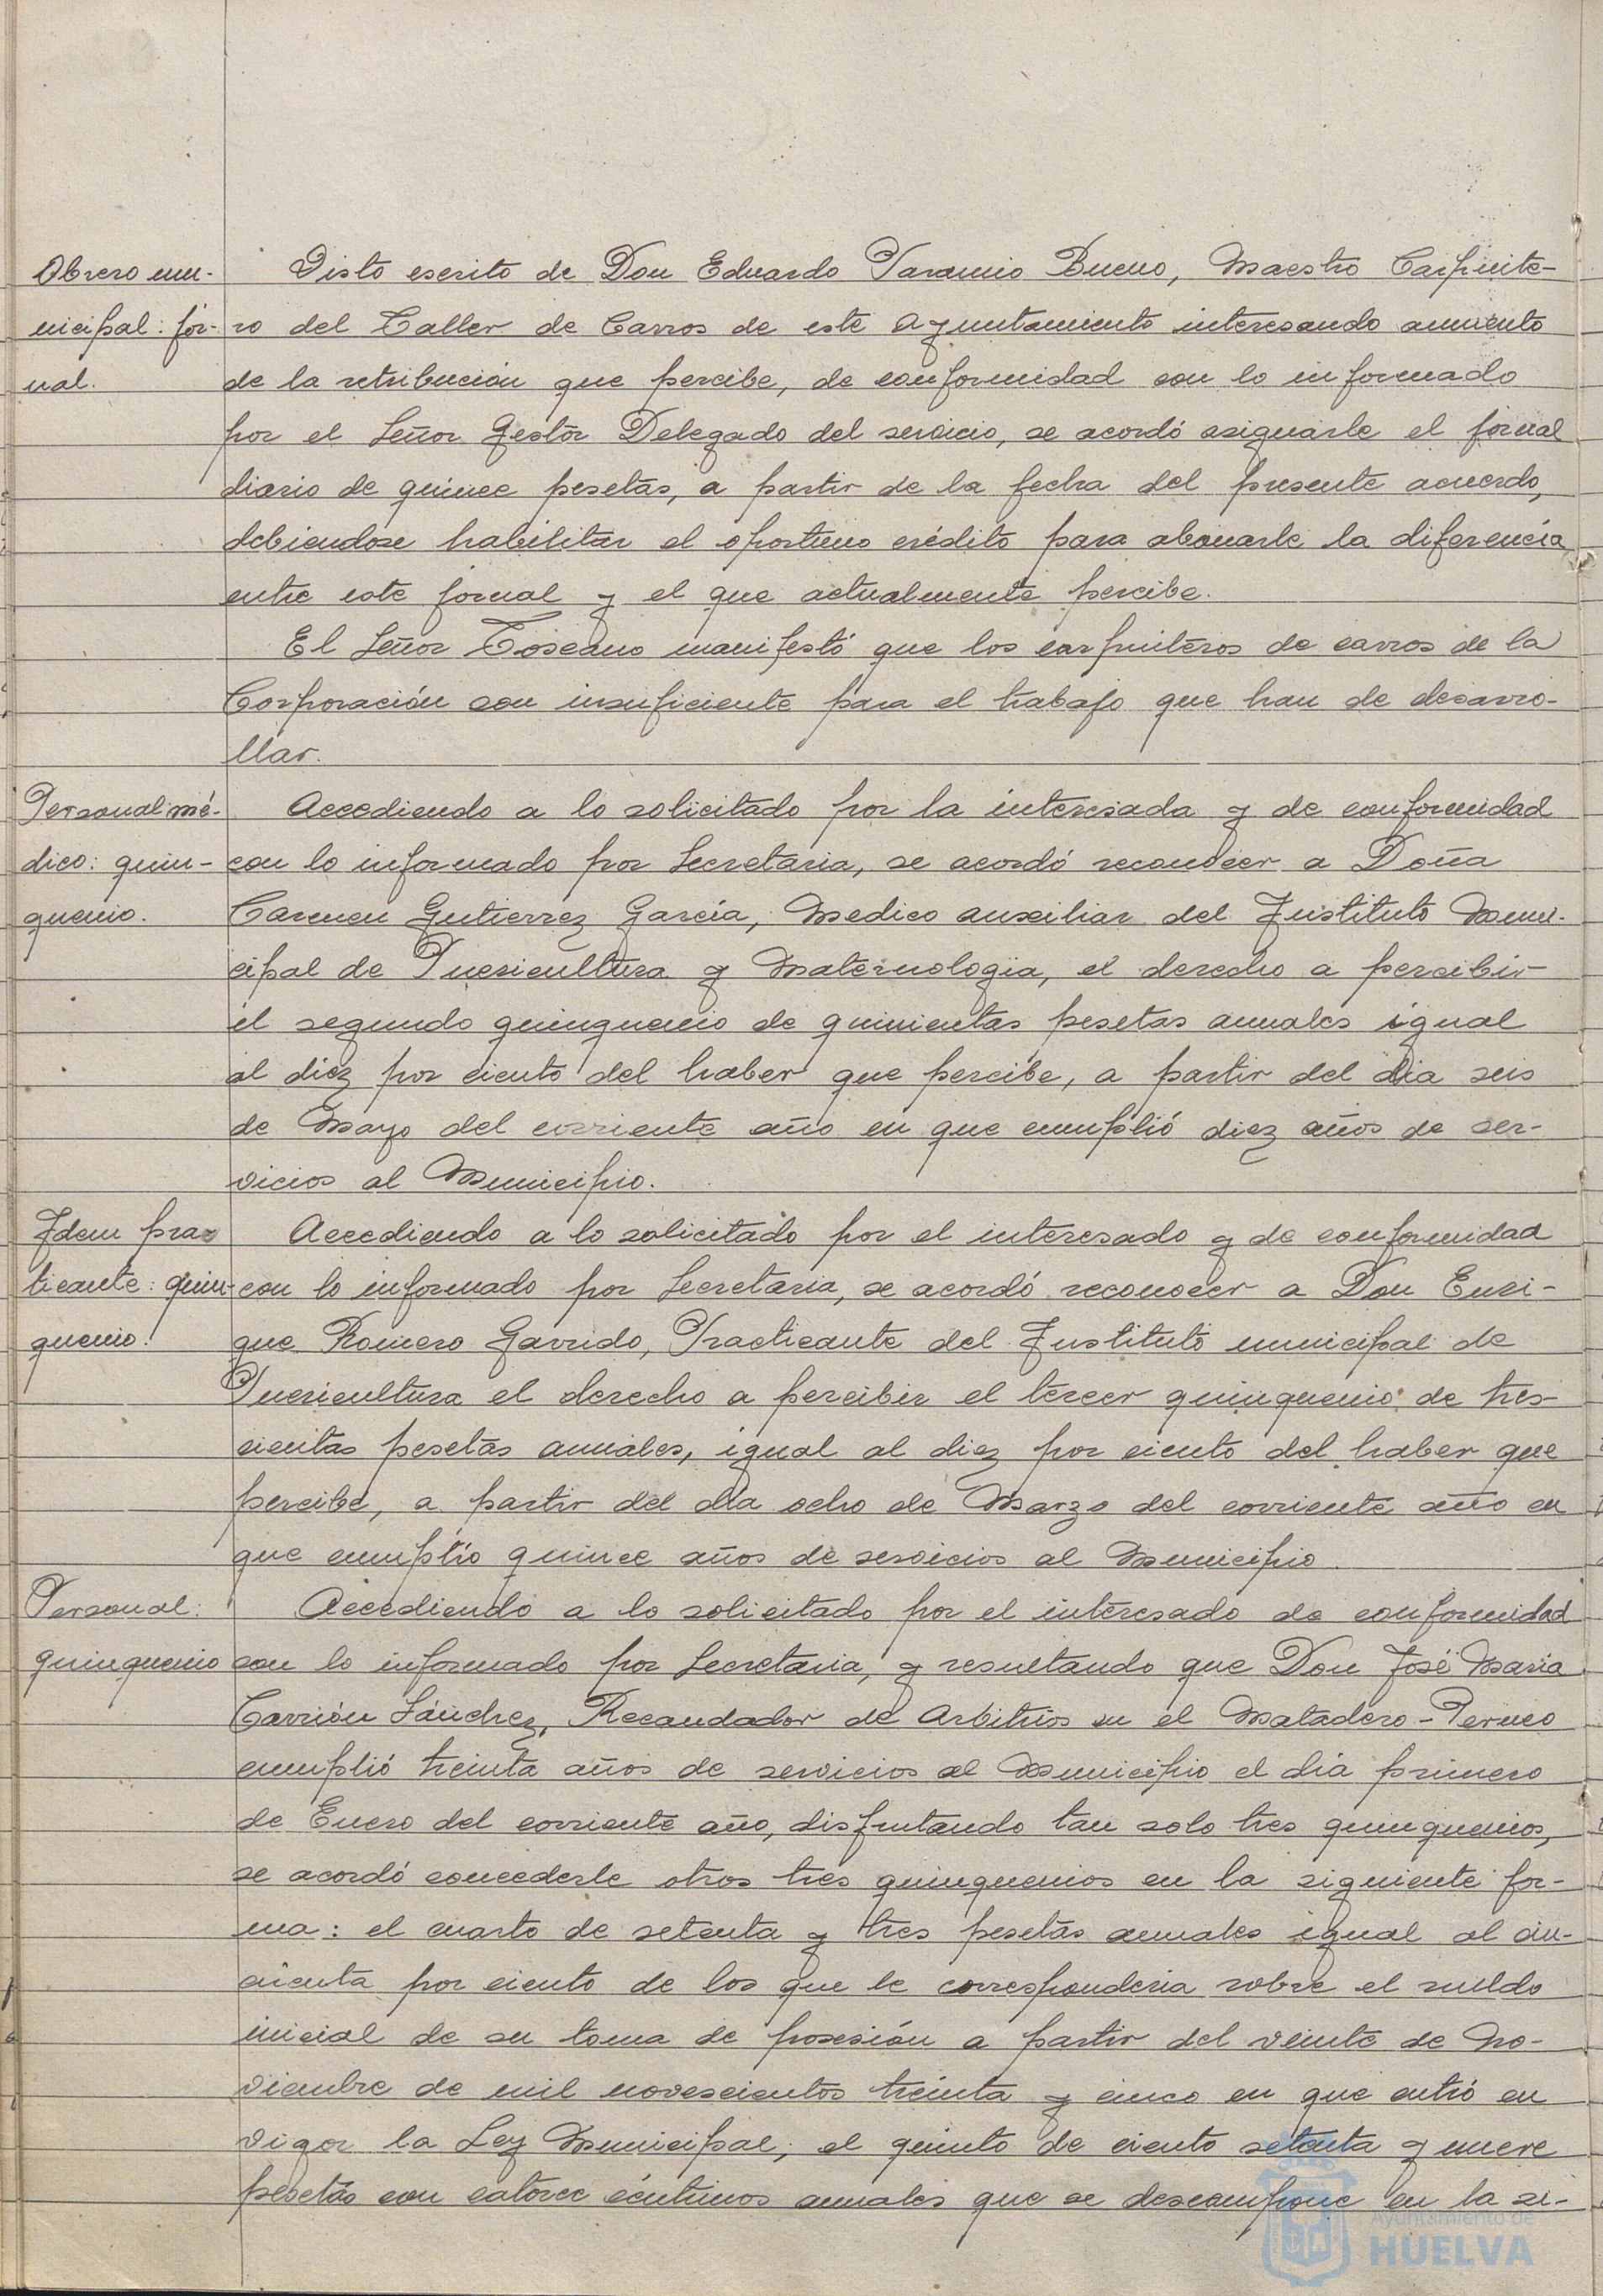 Obrero mu-
nicipal: jor-
nal.
Visto escrito de Don Eduardo Paramio Bueno, Maestro Carpinte-
ro del Taller de Carros de este Ayuntamiento interesando aumento
de la retribución que percibe, de conformidad con lo informado
por el Señor Gestor Delegado del servicio, se acordó asignarle el jornal
diario de quince pesetas, a partir de la fecha del presente acuerdo,
debiendose habilitar el oportuno crédito para abonarle la diferencia
entre este jornal y el que actualmente percibe.
El Señor Toscano manifestó que los carpinteros de carros de la
Corporación son insuficiente para el trabajo que han de desarro-
llar.
Personal mé-
dico: quin-
quenio.
Accediendo a lo solicitado por la interesada y de conformidad
con lo informado por Secretaria, se acordó reconocer a Doña
Carmen Gutierrez García, Medico auxiliar del Instituto Muni-
cipal de Puericultura y Maternologia, el derecho a percibir
el segundo quinquenio de quinientas pesetas anuales igual
al diez por ciento del haber que percibe, a partir del dia seis
de Mayo del corriente año en que cumplió diez años de ser-
vicios al Municipio.
Idem prac
ticante: quin-
quenio.
Accediendo a lo solicitado por el interesado y de conformidad
con lo informado por Secretaria, se acordó reconocer a Don Enri-
que Romero Garrido, Practicante del Instituto municipal de
Puericultura el derecho a percibir el tercer quinquenio de tres-
cientas pesetas anuales, igual al diez por ciento del haber que
percibe, a partir del dia ocho de Marzo del corriente año en
que cumplío quince años de servicios al Municipio.
Personal:
quinquenio
Accediendo a lo solicitado por el interesado de conformidad
con lo informado por Secretaria, y resultando que Don José Maria
Carrión Sánchez, Recaudador de Arbitrios en el Matadero-Perneo
cumplió treinta años de servicios al Municipio el día primero
de Enero del corriente año, disfrutando tan solo tres quinquenios,
se acordó concederle otros tres quinquenios en la siguiente for-
ma: el cuarto de setenta y tres pesetas anuales igual al cin-
cuenta por ciento de los que le corresponderia sobre el sueldo
inicial de su toma de posesión a partir del veinte de No-
viembre de mil novescientos treinta y cinco en que entró en
vigor la Ley Municipal; el quinto de ciento setenta y nueve
pesetas con catorce céntimos anuales que se descompone en la si-
Ayuntamiento de
HUELVA